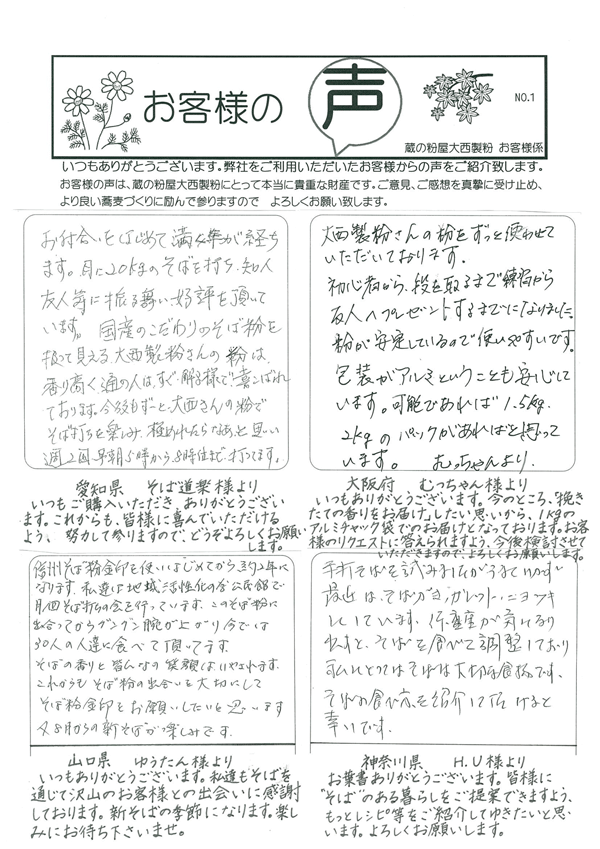 お客様の
声
NO.1
蔵の粉屋大西製粉 お客様係
いつもありがとうございます。弊社をご利用いただいたお客様からの声をご紹介致します。
お客様の声は、蔵の粉屋大西製粉にとって本当に貴重な財産です。ご意見、ご感想を真摯に受け止め、
より良い蕎麦づくりに励んで参りますので よろしくお願い致します。
お付合いをはじめて満4年が経ち
ます。月に20kgのそばを打ち、知人
友人等に振る舞い好評を頂いて
います。国産のこだわりのそば粉を
扱って見える大西製粉さんの粉は、
香り高く通の人は、すぐ解る様で喜こばれ
ております。今後もずーと、大西さんの粉で
そば打ちを楽しみ、極められたらなあ、と思い
週2回早朝5時から8時位まで打ってます。
愛知県 そば道楽様より
いつもご購入いただき ありがとうござい
ます。これからも、皆様に喜んでいただける
よう、努力して参りますので、どうぞよろしくお願い
します。
大西製粉さんの粉をずっと使わせて
いただいております。
初心者から、段を取るまで練習から
友人へプレゼントするまでになりました。
粉が安定しているので使いやすいです。
包装がアルミということも安心して
います。可能であれば1.5kg.
2kgのパックがあればと思って
います。 むっちゃんより.
大阪府 むっちゃん様より
いつもありがとうございます。今のところ、"挽き
たての香りをお届け"したい思いから、1kgの
アルミチャック袋でのお届けとなっております。お客
様のリクエストに答えられますよう、今後検討させて
いただきますので、よろしくお願いします。
信州そば粉金印を使いはじめてから約2年に
なります。私達は地域活性化の為公民館で
月1回そば打ちの会を行っています。このそば粉に
出会ってからグングン腕が上がり今では
30人の人達に食べて頂いてます。
そばの香りと皆んなの笑顔にいやされます。
これからもそば粉の出会いを大切にして
そば粉金印をお願いしたいと思います
又8月からの新そばが楽しみです。
山口県 ゆうたん様より
いつもありがとうございます。私達もそばを
通じて沢山のお客様との出会いに感謝
しております。新そばの季節になります。楽し
みにお待ち下さいませ。
手打そばを試みましたがうまくいかず
最近は、そばがき、ガレット、ニョッキ
にしています。
そばを食べて調整しており
私にとってはそばは大切な食物です。
そばの食べ方を紹介して頂けると
幸いです。
神奈川県 H.U様より
お葉書ありがとうございます。皆様に
"そば"のある暮らしをご提案できますよう、
もっとレシピ等をご紹介してゆきたいと思
います。よろしくお願いします。